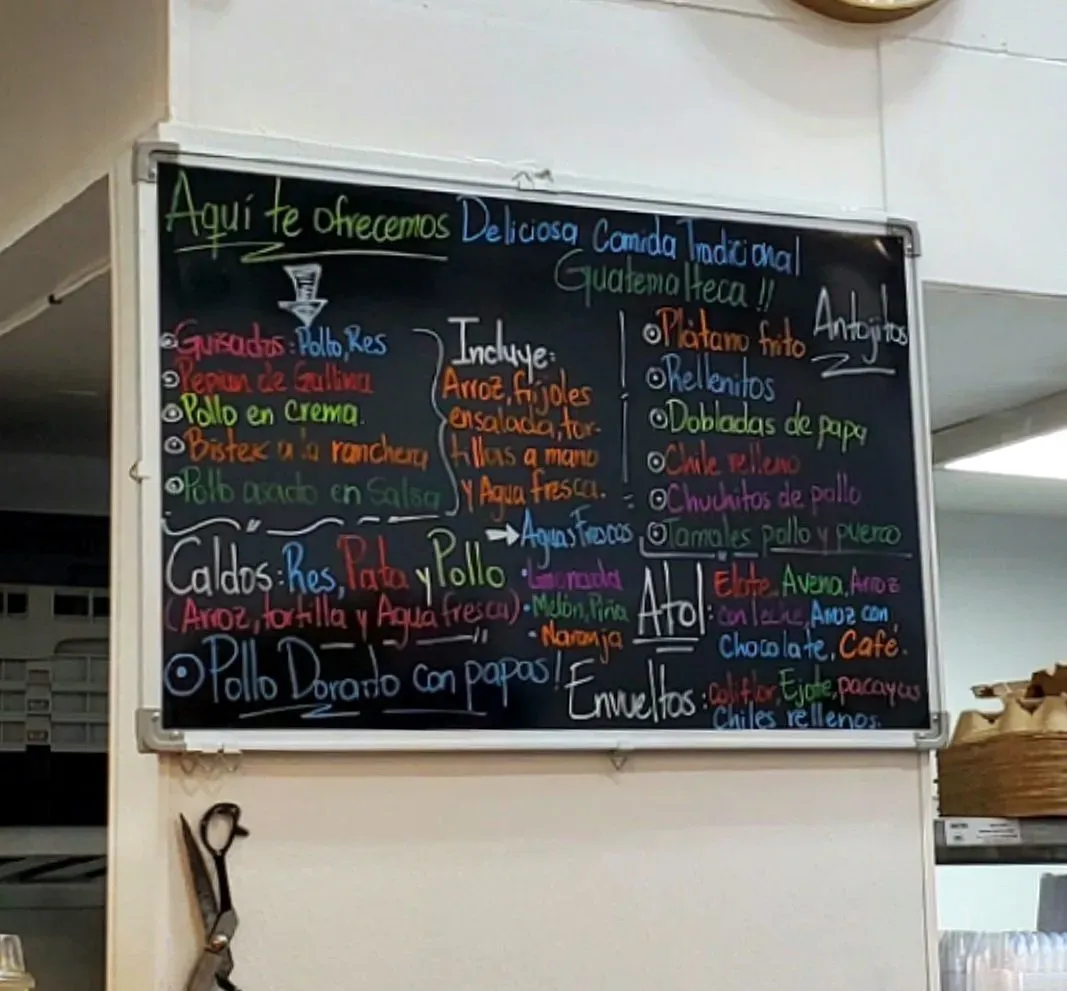 Aquí te ofrecemos Deliciosa Comida Tradicional
Guatemalteca !!
Guisados: Pollo, Res
Pepian de Gallina
Pollo en crema.
Bistex a la ranchera
Pollo asado en Salsa
Incluye:
Arroz, frijoles
ensalada, tor-
tillas a mano
y Agua fresca.
Antojitos
Plátano frito
Rellenitos
Dobladas de papa
Chile relleno
Chuchitos de pollo
Tamales pollo y puerco
Caldos: Res, Pata y Pollo
(Arroz, tortilla y Agua fresca)
Pollo Dorado con papas!
Aguas Frescas
Limonada
Melón, Piña
Naranja
Atol: Elote, Avena, Arroz
con leche, Arroz con
Chocolate, Café.
Envueltos: coliflor, Ejote, pacayas
Chiles rellenos.